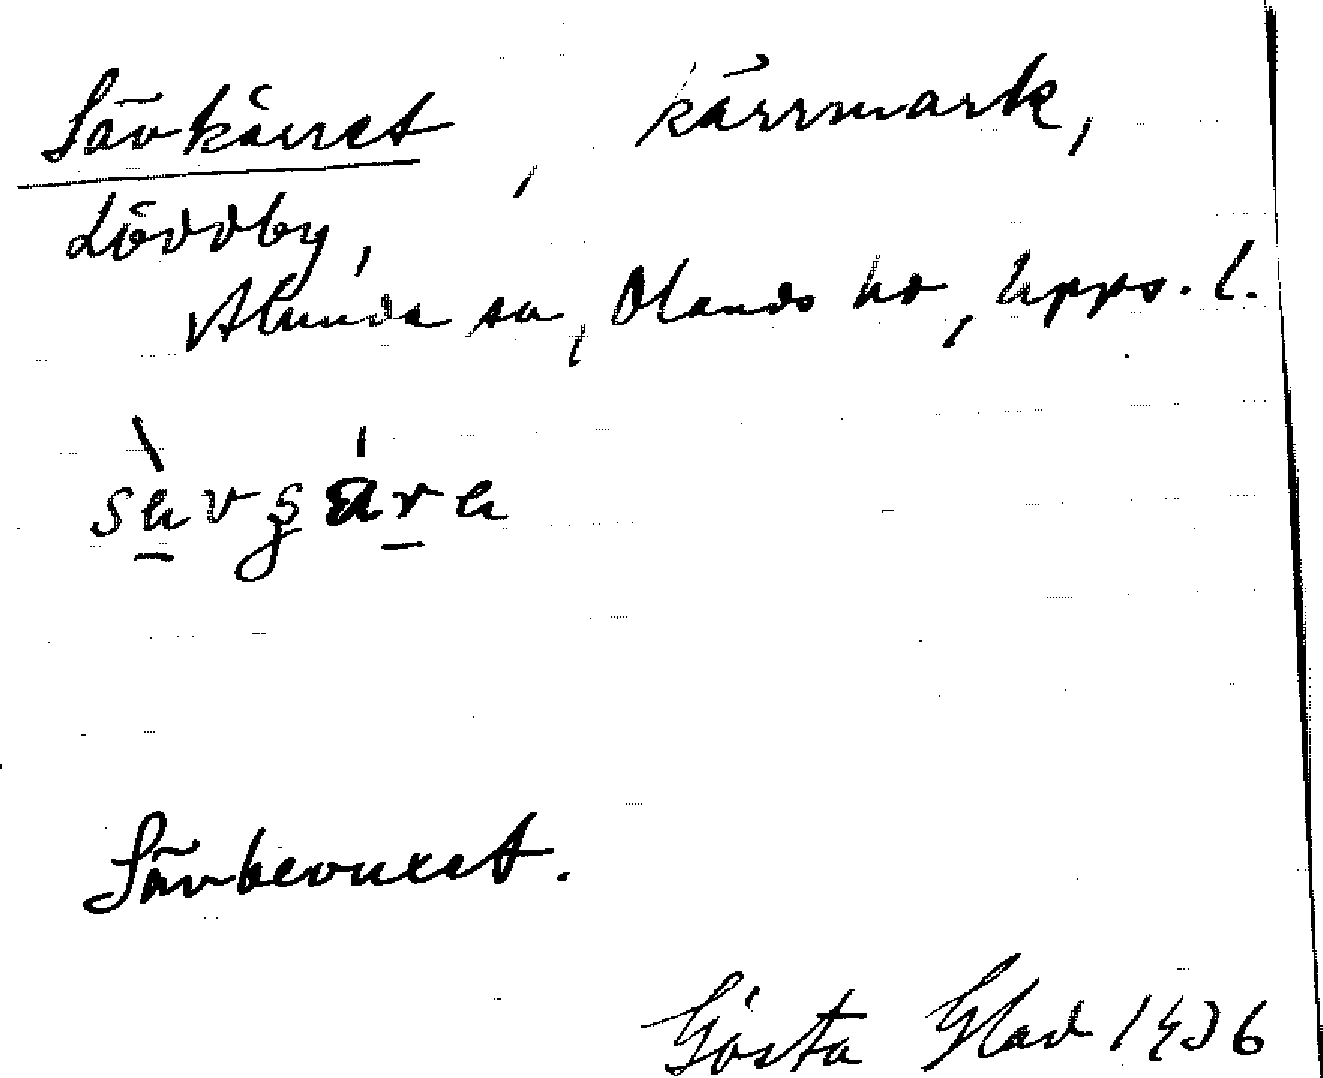 Sävkärret, kärrmark,
Löddby,
Alunda sn, Olands hd, Upps. l.
Sävbevuxet.
Gösta Glad 1936